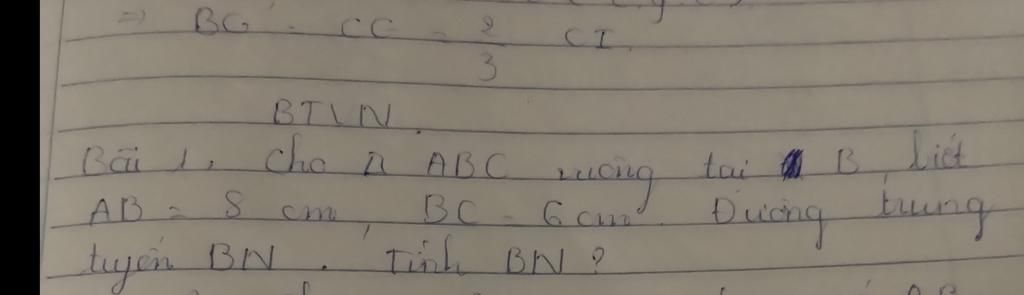 ⇒ BG = CG = 2/3 CI
BTVN.
Bài 1. Cho Δ ABC vuông tại B, biết
AB = 8 cm, BC = 6 cm. Đường trung
tuyến BN. Tính BN?